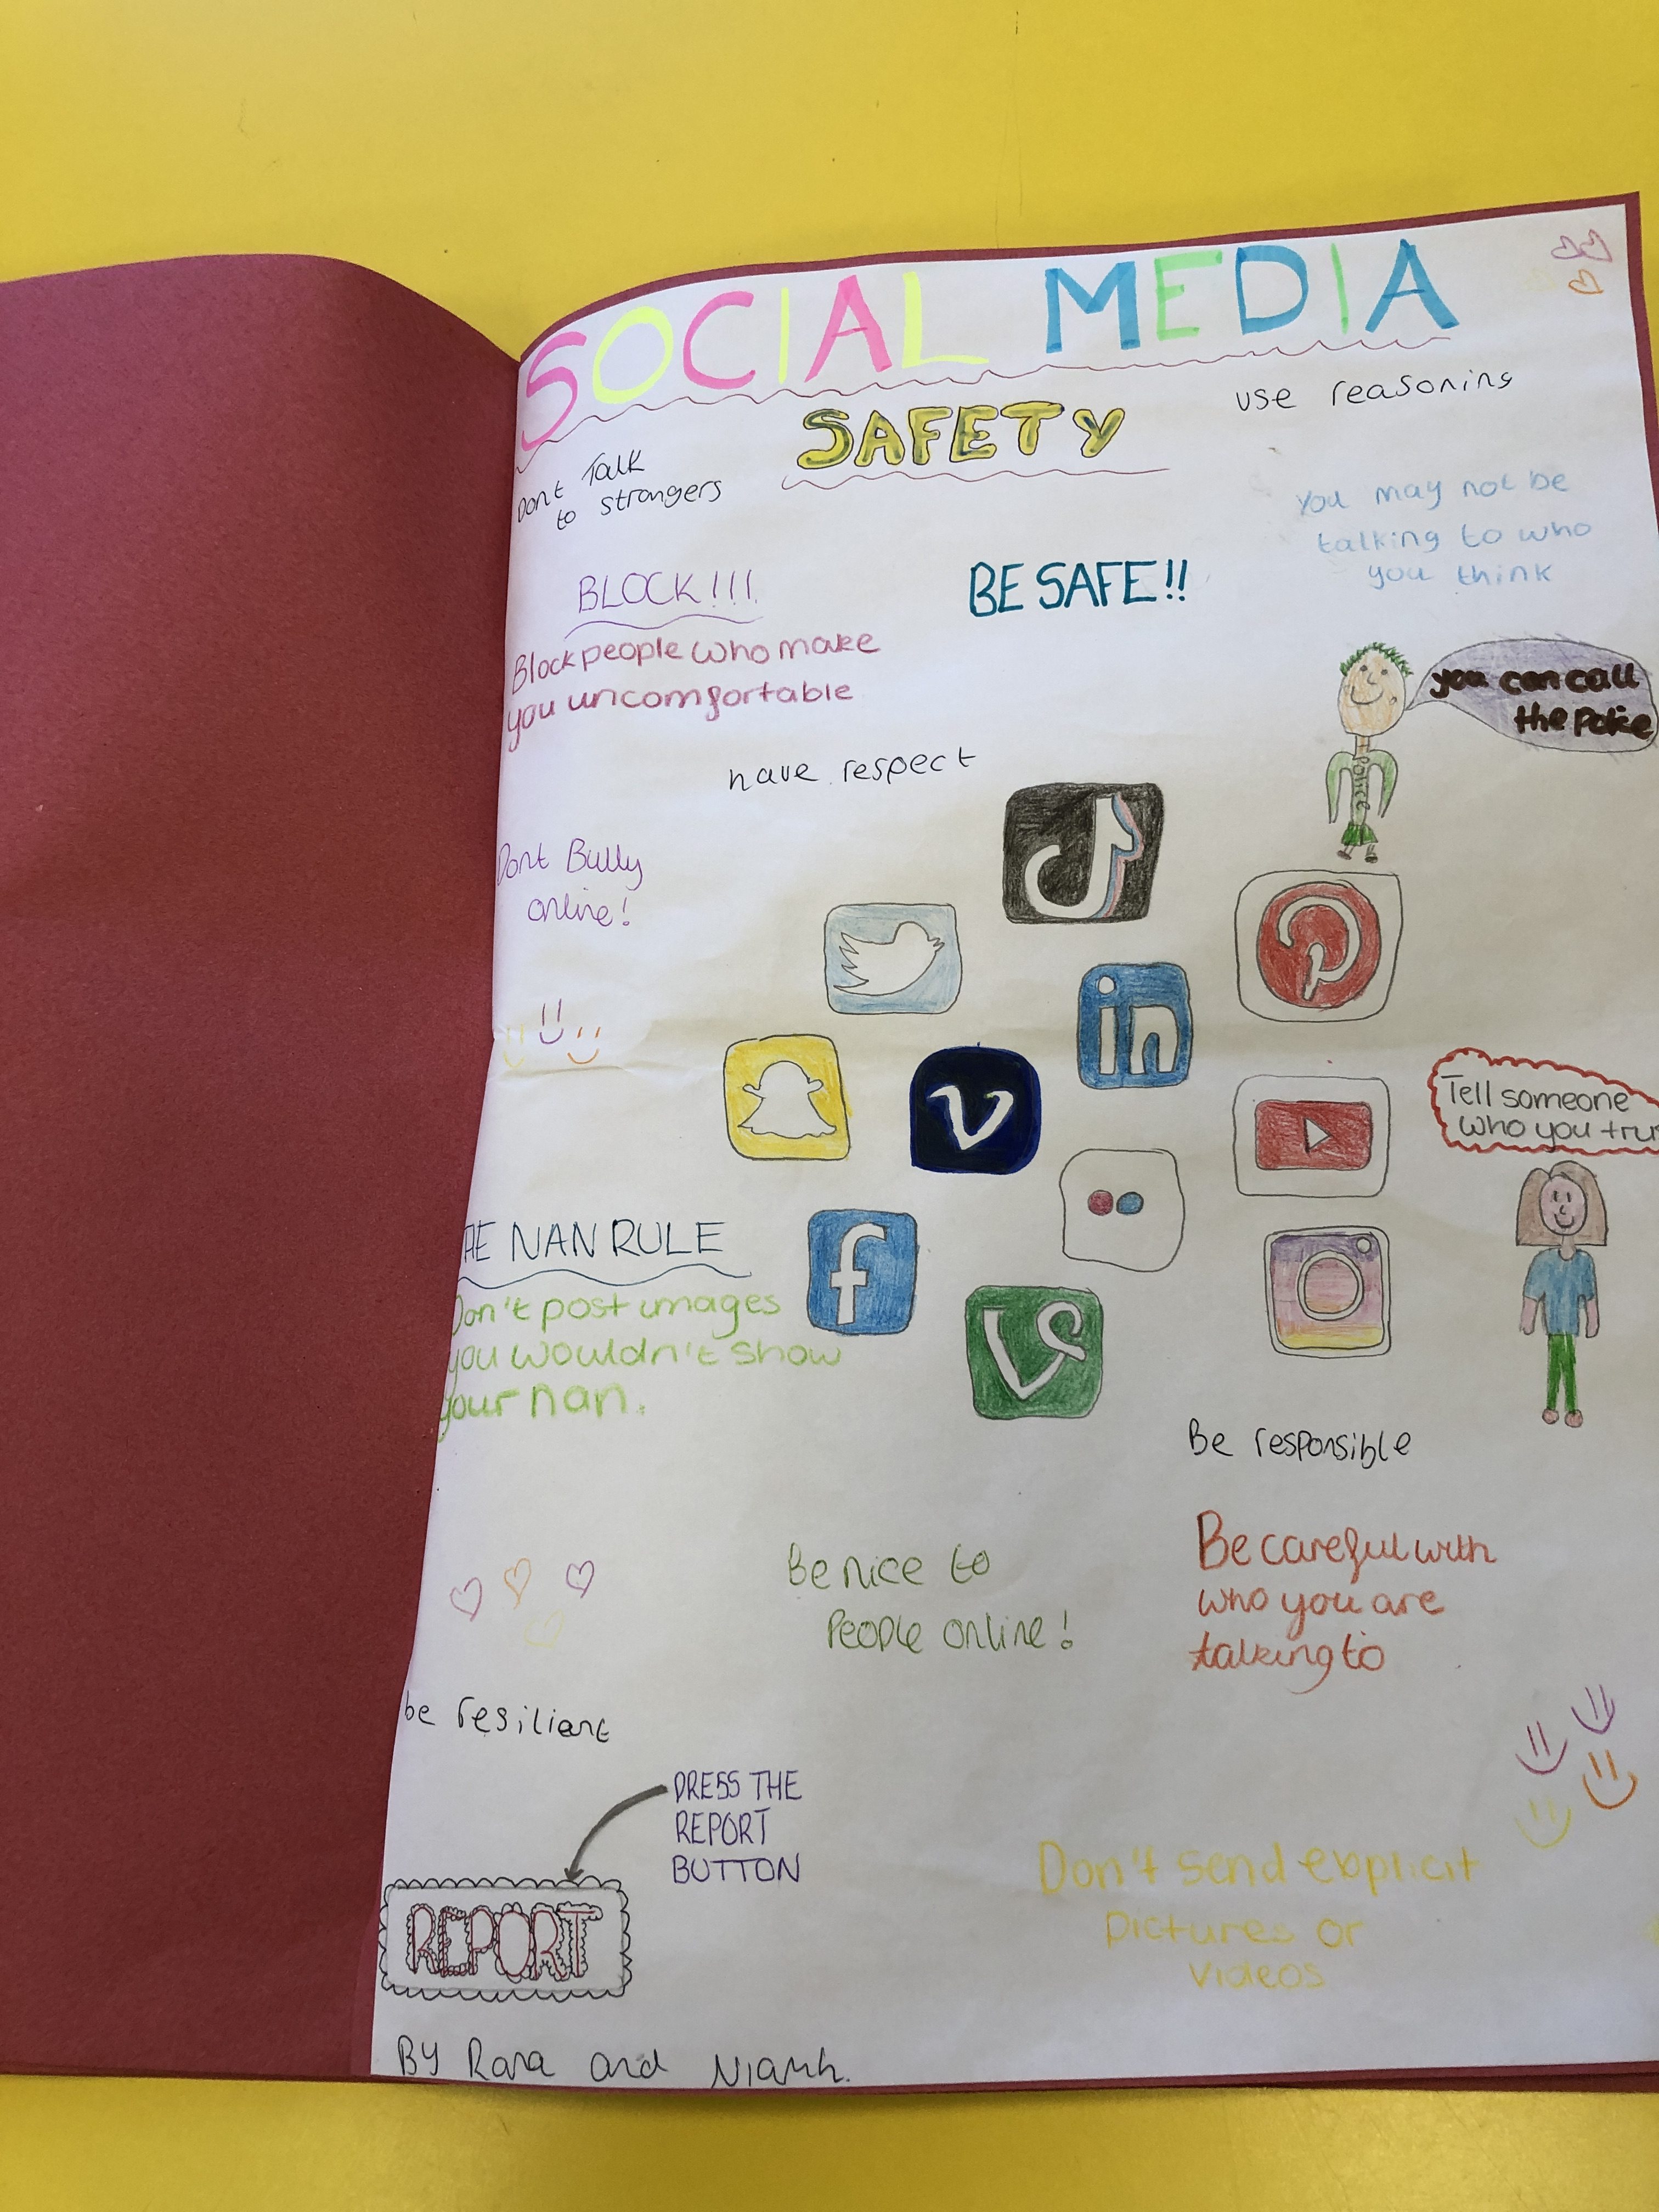 SOCIAL MEDIA
SAFETY
use reasoning
Dont Talk
to strangers
You may not be
talking to who
you think
BLOCK!!!
BE SAFE!!
Block people who make
you uncomfortable
you can call
the police
POLICE
have respect
Dont Bully
online!
in
V
Tell someone
who you
f
NAN RULE
Don't post images
you wouldn't show
your nan.
Be responsible
Be nice to
People online!
Be careful with
who you are
talking to
be resiliant
PRESS THE
REPORT
BUTTON
REPORT
Don't send explicit
pictures or
videos
By Rara and Niamh.